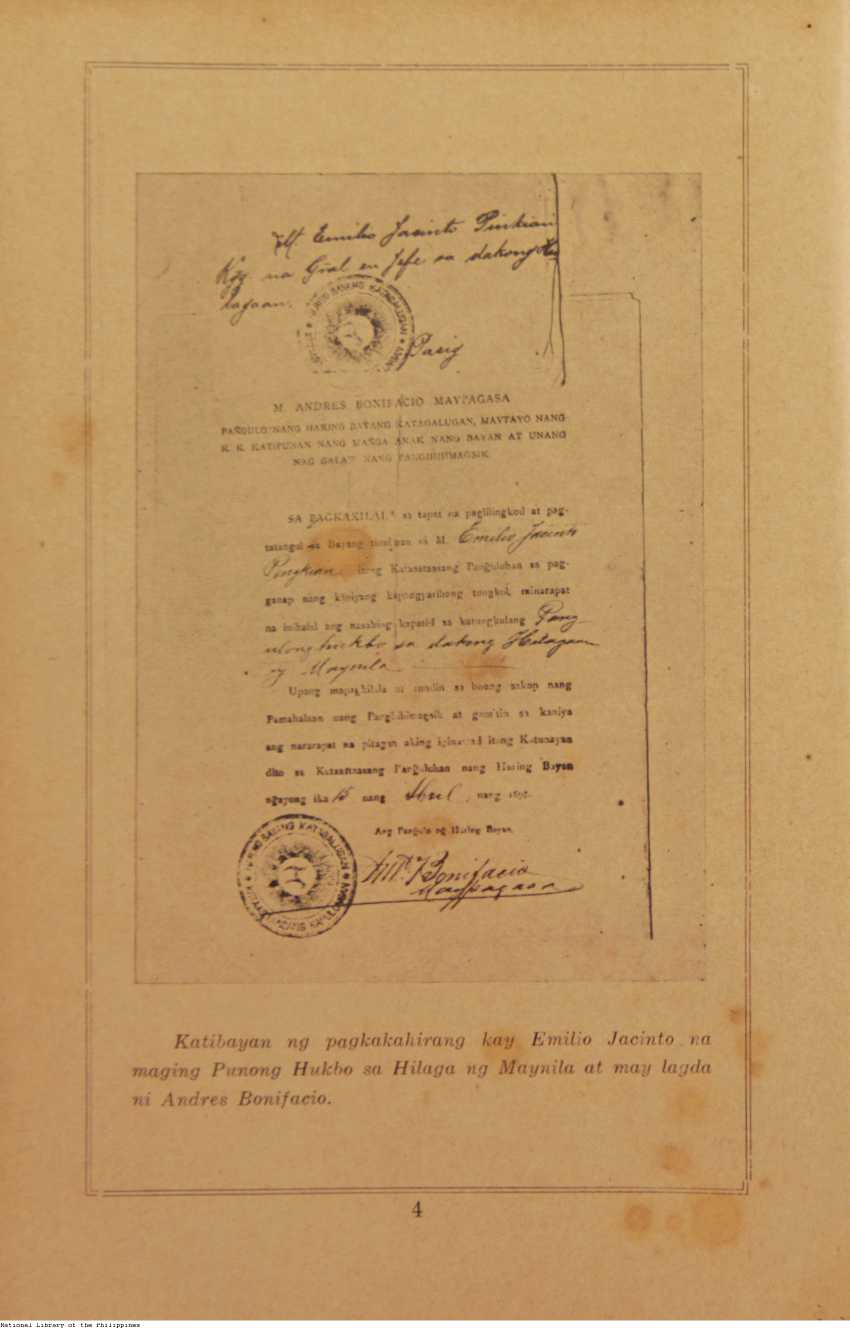 M. Emilio Jacinto Pinkian
Kgg na Gral en Jefe sa dakong Hi
lagaan.
Pasig
M. ANDRES BONIFACIO MAYPAGASA
PANGULO NANG HARING BAYANG KATAGALUGAN, MAYTAYO NANG
K. K. KATIPUNAN NANG MANGA ANAK NANG BAYAN AT UNANG
NAG GALAW NANG PANGHIHIMAGSIK
SA PAGKAKILALA sa tapat na paglilingkod at pag-
tatangol sa Bayang tinubuan ni M. Emilio Jacinto
Pingkian, itong Kataastaasang Panguluhan sa pag-
ganap nang kaniyang kapangyarihang tungkol, minarapat
na inihalal ang nasabing kapatid sa katungkulang Pang
ulong hukbo sa dakong Hilagaan
ng Maynila
Upang mapagkilala at sundin sa boong sakop nang
Pamahalaan nang Panghihimagsik at gamitin sa kaniya
ang nararapat na pitagan aking iginawad itong Katunayan
dito sa Kataastaasang Panguluhan nang Haring Bayan
ngayong ika 15 nang Abril, nang 1897.
Ang Pangulo ng Haring Bayan,
And. Bonifacio
Maypagasa
Katibayan ng pagkakahirang kay Emilio Jacinto na
maging Punong Hukbo sa Hilaga ng Maynila at may lagda
ni Andres Bonifacio.
4
National Library of the Philippines